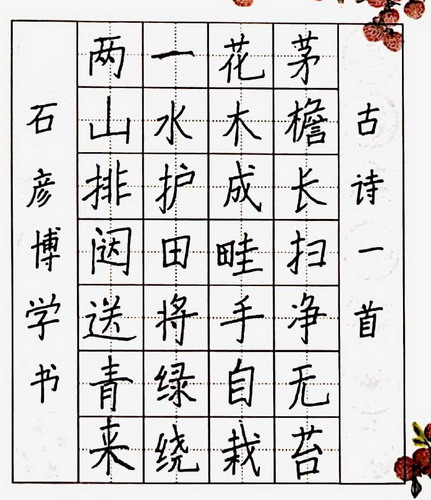 古诗一首
茅檐长扫净无苔
花木成畦手自栽
一水护田将绿绕
两山排闼送青来
石彦博学书